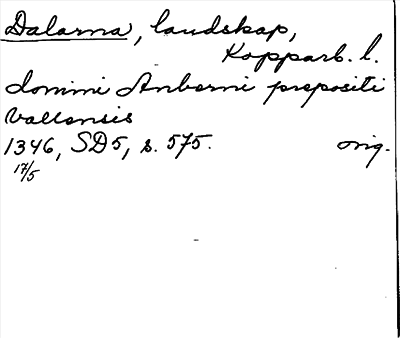 Dalarna, landskap,
Kopparb. l.
domini Anberni prepositi
vallensis
1346, SD5, s. 575. orig.
17/5